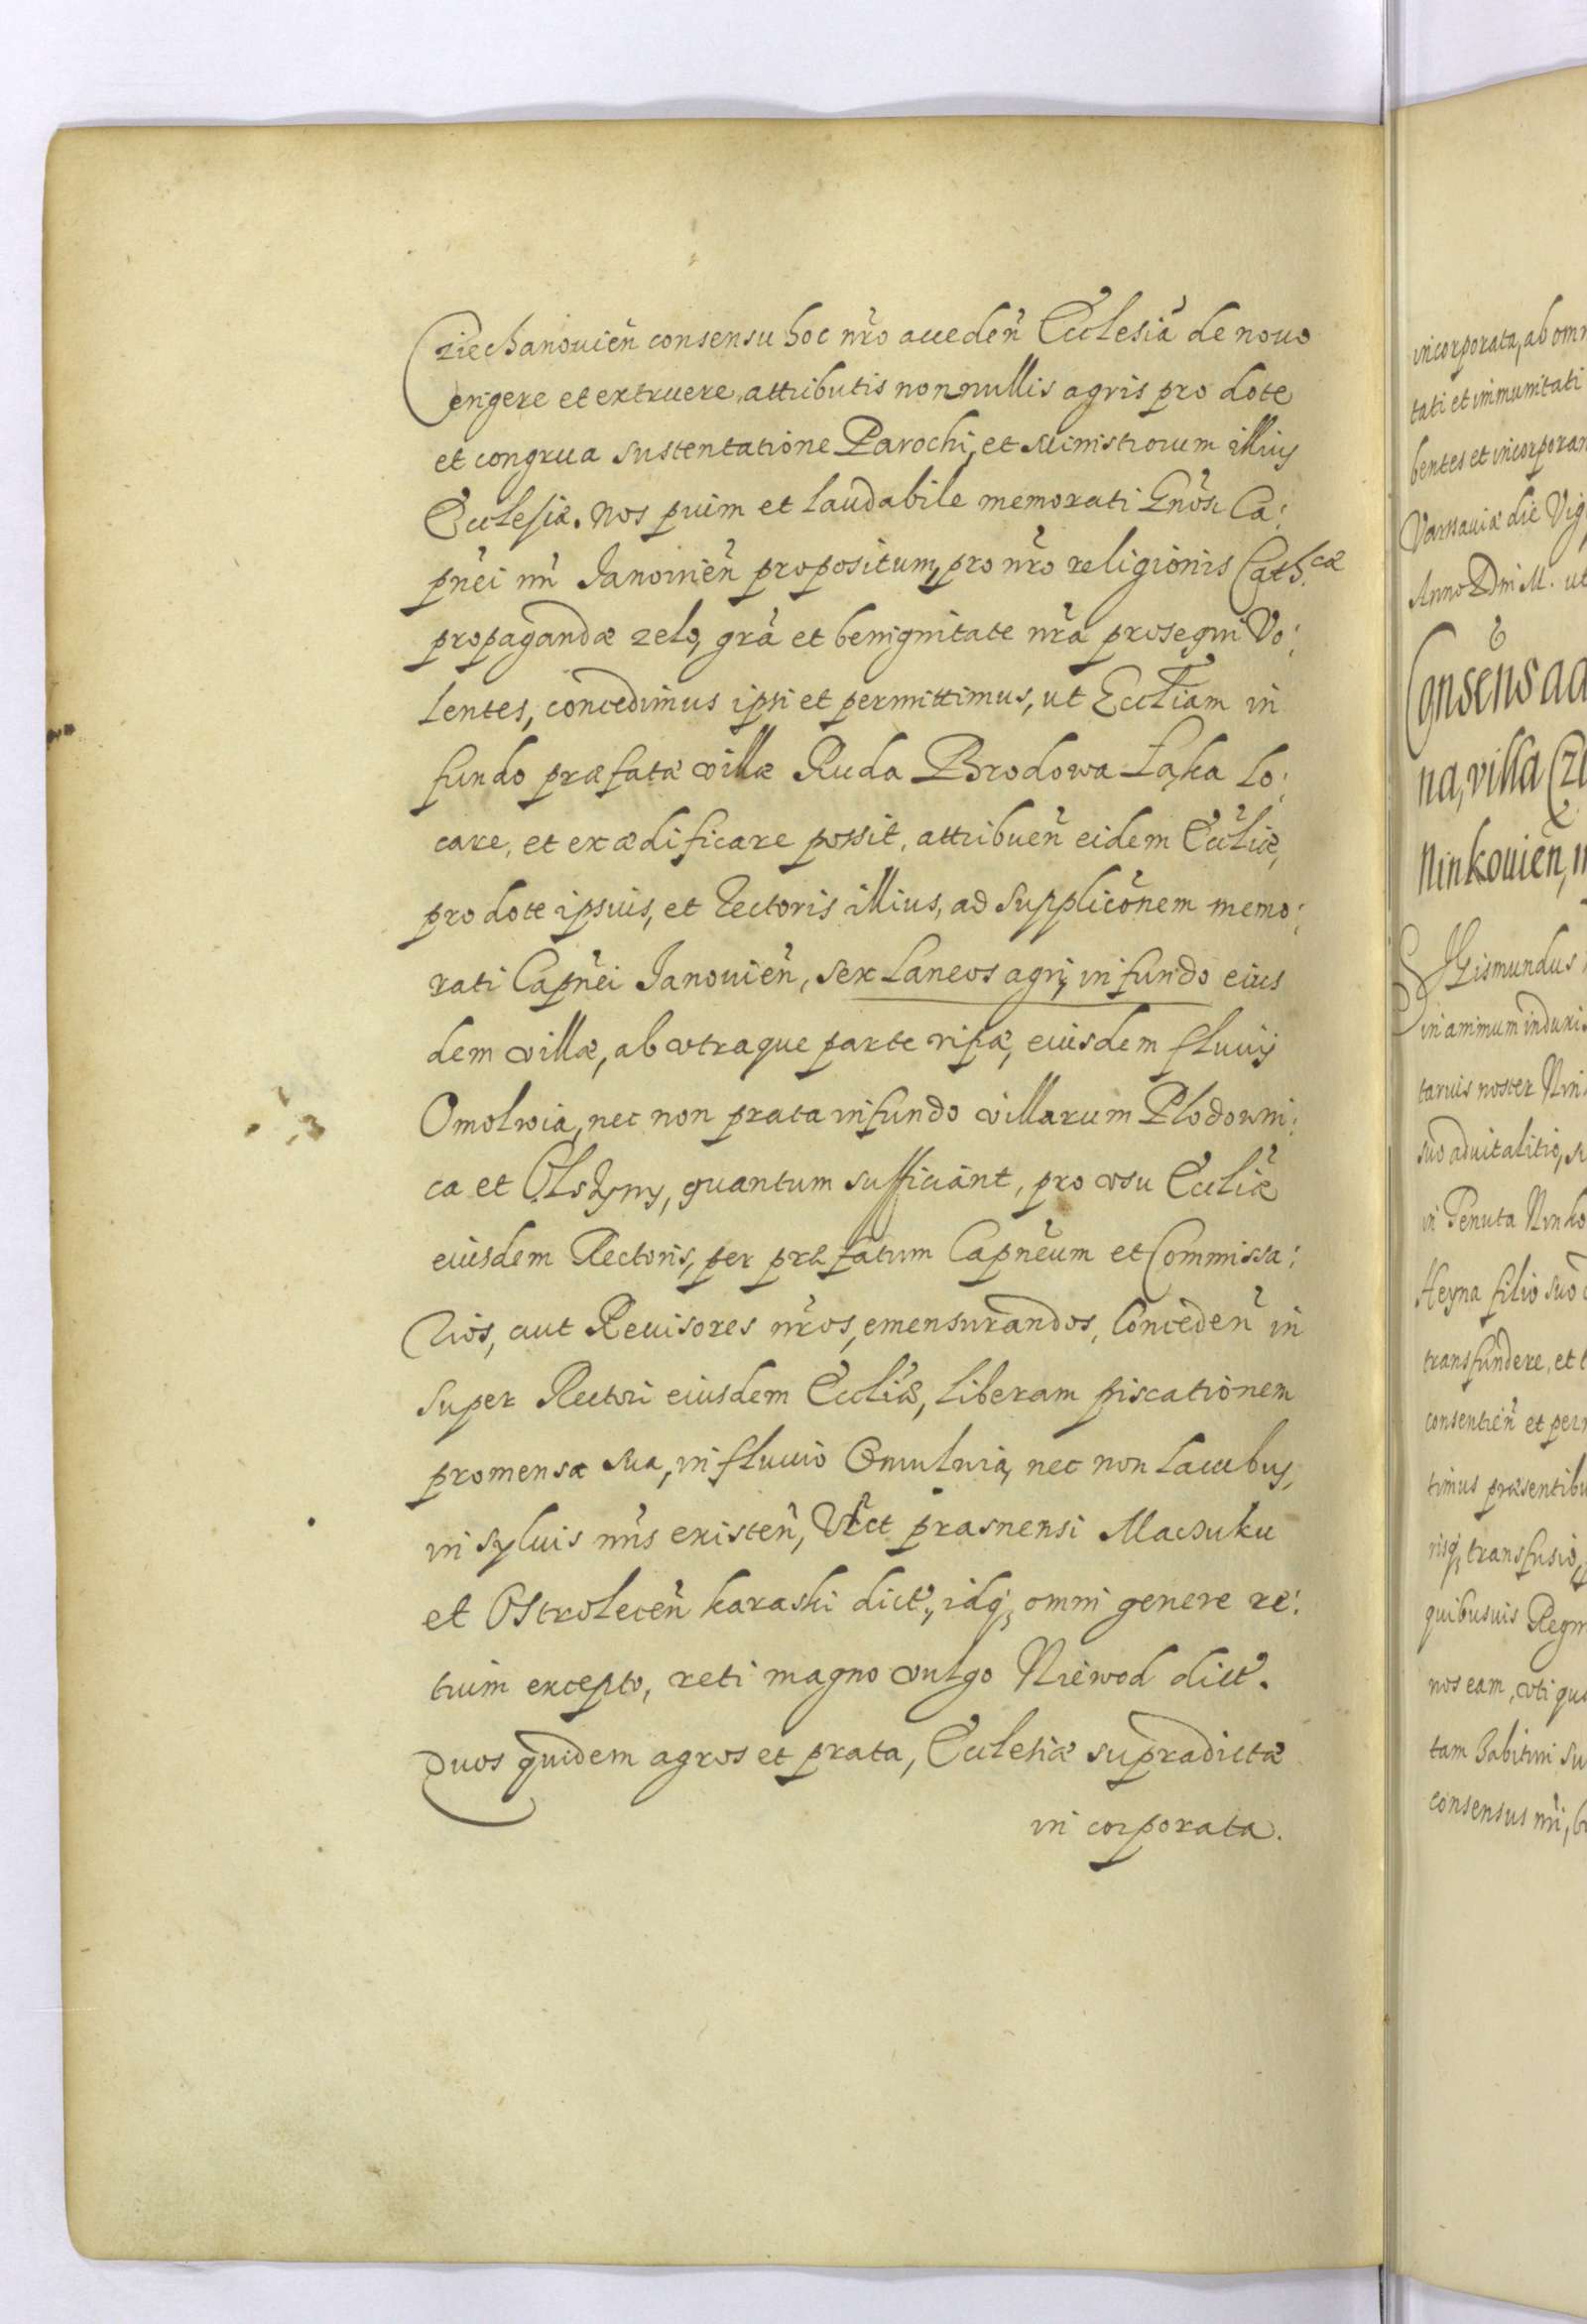 Cziechanouien̄ consensu hoc nr̄o acceden̄ Ecclesiā de nouo
erigere et extruere, attributis nonnullis agris pro dote
et congrua sustentatione Parochi, et Ministrorum illius
Ecclesiæ. Nos puim et laudabile memorati Gn̄osi Ca:
pn̄ei nr̄i Janouien̄ propositum, pro nr̄o religionis Cath:cæ
propagandæ zelo, grā et benignitate nr̄a prosequi Vo:
lentes, concedimus ipsi et permittimus, ut Eccl̄iam in
fundo præfatæ villæ Ruda Brodowa Łąka Lo:
care, et exædificare possit, attribuen̄ eidem Eccl̄iæ,
pro dote ipsius, et Rectoris illius, ad supplicōnem memo:
rati Capn̄ei Janouien̄, sex Laneos agri, in fundo eius
dem villæ, ab vtraque parte ripæ, eiusdem fluuij
Omolwia, nec non prata in fundo villarum Plodowni:
ca et Olszyny, quantum sufficiant, pro vsu Eccl̄iæ
eiusdem Rectoris, per præfatum Capn̄eum et Commissa:
rios, aut Reuisores nr̄os, emensurandos, Conceden̄ in
super Rectori eiusdem Eccl̄iæ, liberam piscationem
pro mensa sua, in fluuio Omulwia, nec non Lacubus,
in syluis nr̄is existen̄, Vl̄ct prasnensi Maczuku
et Ostrolecen̄ karaski dict., idq; omni genere re:
tuim excepto, reti magno vulgo Niewod dict.
Quos quidem agros et prata, Ecclesiæ supradictæ
in corporata.
incorporata, ab omn
tati et immunitati
bentes et incorporan
Varsauiæ die Vig
Anno Dn̄i M. ut
Consens ad
na, villa Cz
Ninkouien̄,
Sigismundus
in animum induxi
tarius noster Nin
suo aduitalitio,
in Tenuta Ninko
Heyna filio suo
transfundere, et
consentien̄ et per
timus præsentibu
risq; transfusio,
quibusuis Regn
nos eam, vti qua
tam habituri su
consensus nr̄i,